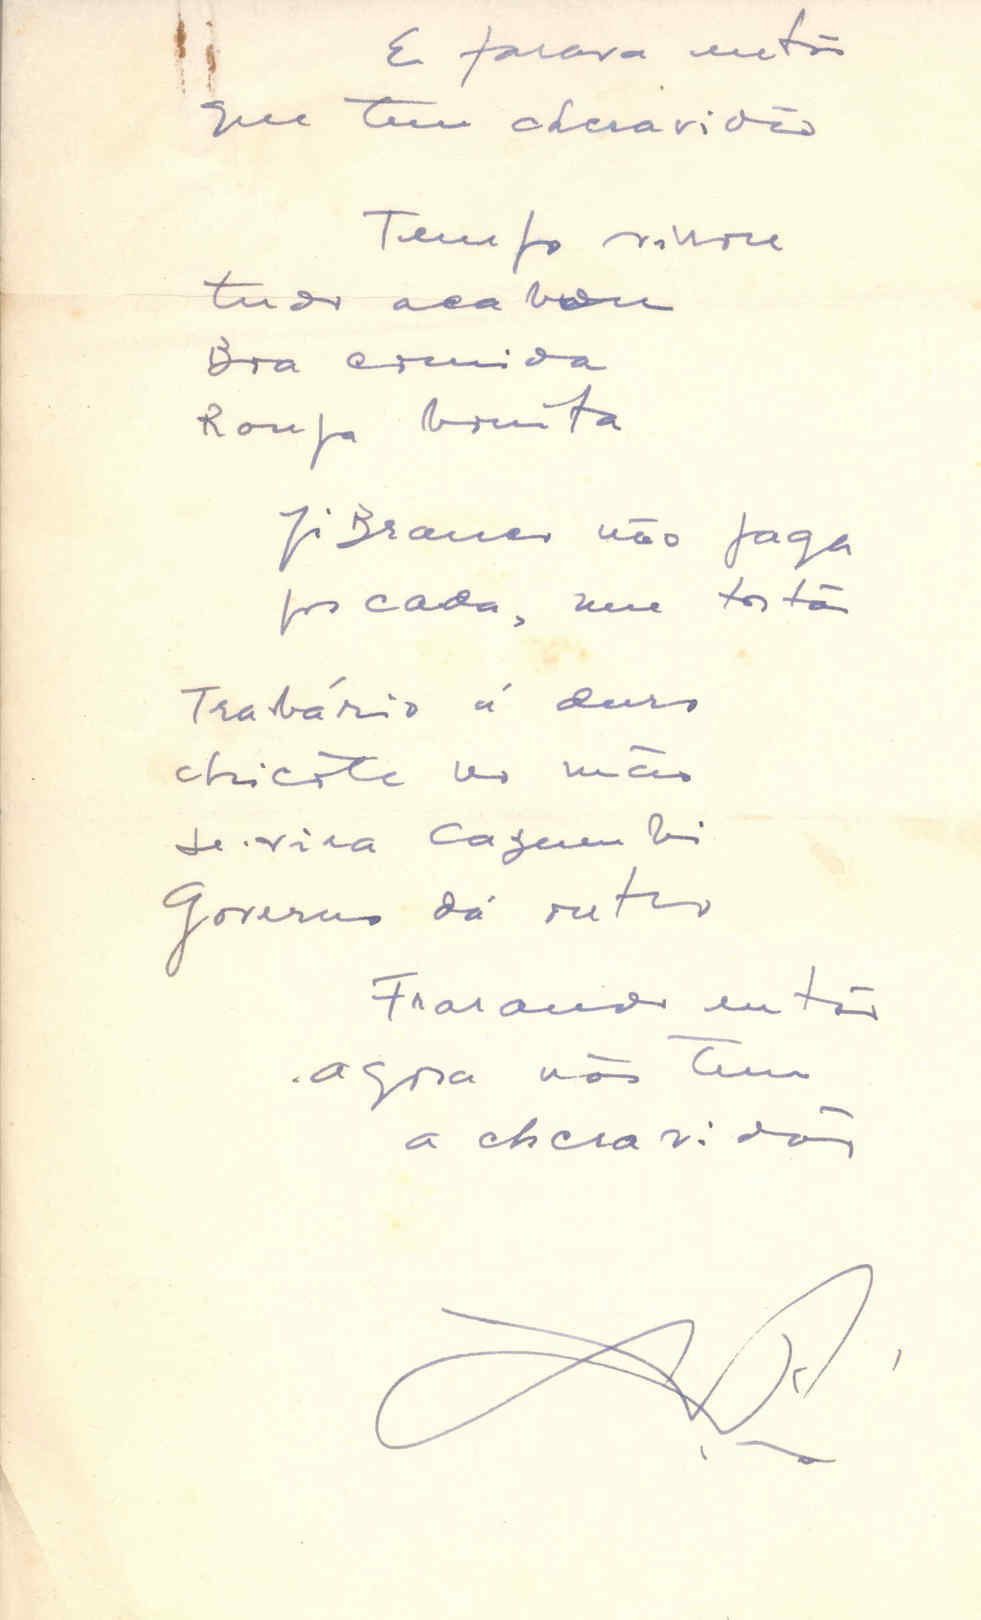 E farava então
que tem chcravidão
Tempo virivore
tudo acabou
Boa comida
Roupa bonita
Ji Branco não paga
pos cada, nem tostão
Trabário é duro
chicôte no mão
se vira Cazumbi
Governo dá outro
Frarando então
agora nós tem
a chcravidão